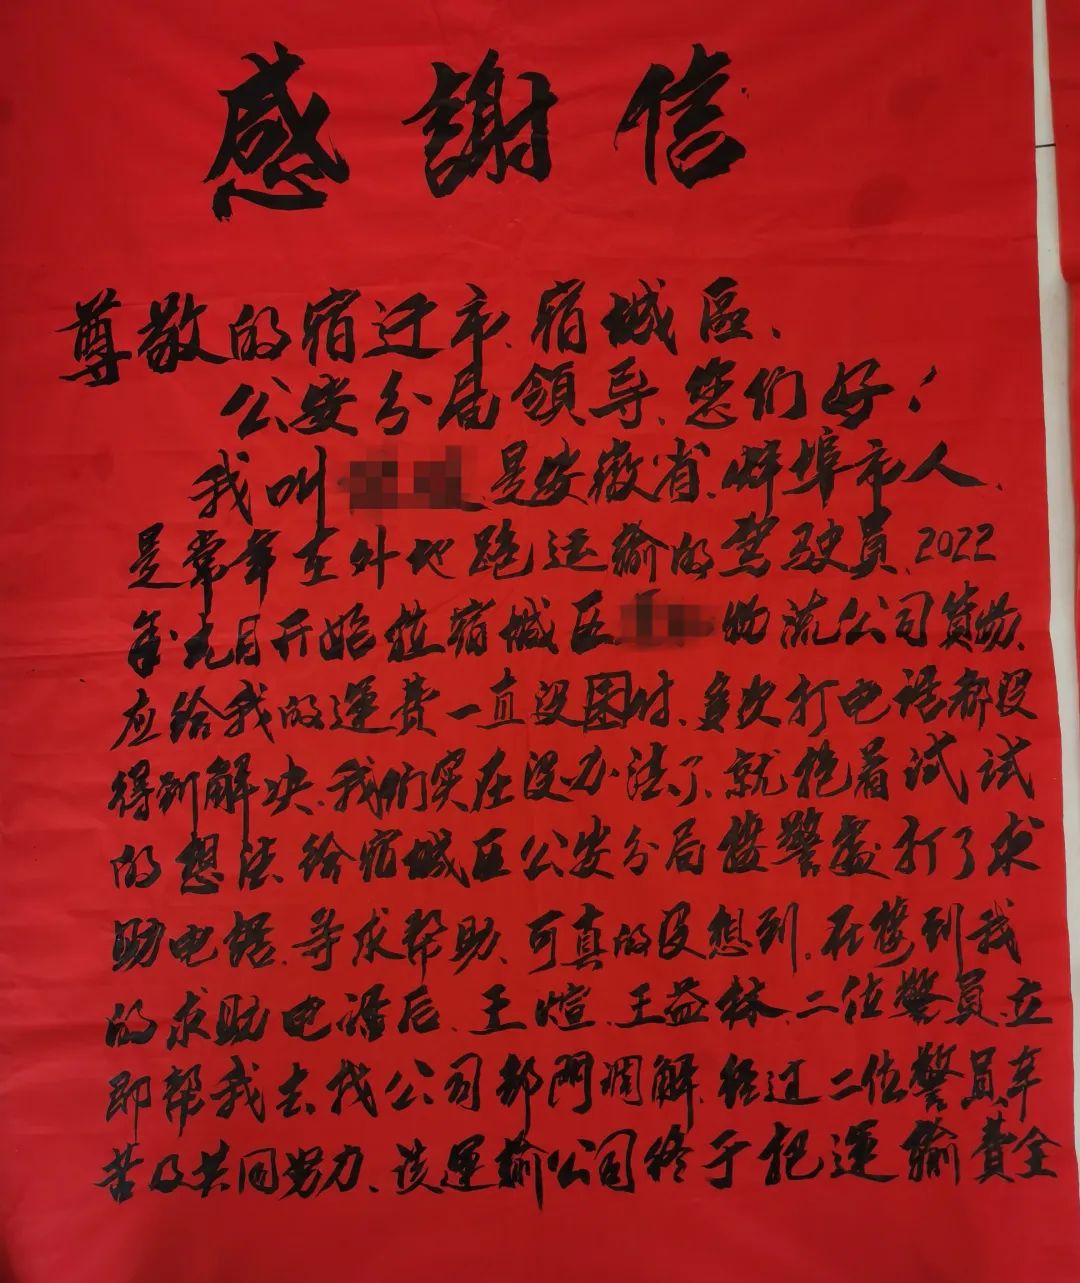 感謝信
尊敬的宿迁市、宿城區、
公安分局領导、您们好!
我叫 是安徽省、蚌埠市人、
是常年在外地跑运输的驾驶员、2022
年九月开始拉宿城区 物流公司货物、
应给我的運费一直没 付、多次打电话都没
得到解决、我们实在没办法了、就抱着试试
的想法、给宿城区公安分局接警處打了求
助电话、寻求帮助、可真的没想到、在接到我
的求助电话后、王煊、王益林、二位警员、立
即帮我去找公司部門调解、经过二位警员、辛
苦及共同努力、该運输公司终于把運输費全